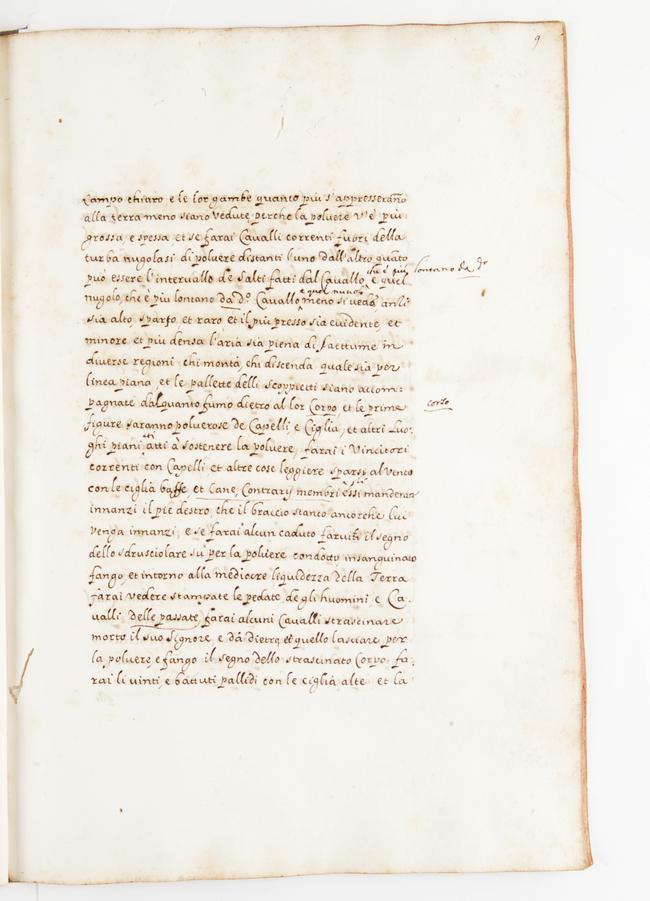 9
Campo chiaro e le lor gambe quanto più s'appresserañ̃o
alla terra meno siano vedute, perche la poluere v'è più
grossa, e spessa, et se farai Cavalli correnti fuori della
turba nugolasi di poluere distanti l'uno dall'altro quãto
che è più lontano da dº
può essere l'intervallo de Salti fatti dal Cavallo, e quel
e quel nuvolo
nugolo, che è più lontano da dº. Cavallo meno si veda anzi
sia alto, sparso, et raro et il più presso sia euidente, et
minore et più densa l'aria sia piena di saettume in
diverse regioni chi monta, chi discenda quale sia per
linea piana, et le pallette delli scoppietti siano accom=
pagnate dalquanto fumo dietro al lor Corpo, et le prime
corso
figure saranno poluerose de Capelli, e Ciglia, et altri Luo,
ghi piani atti à sostenere la poluere, farai i Vincitori
correnti con Capelli et altre cose leggiere sparsi al vento
con le ciglia basse, et Cane, Contrarij membri essi manderai
innanzi il piè destro, che il braccio stanco ancorche lui
venga innanzi, e se farai alcun caduto faruiti il segno
dello sdrusciolare su per la poluere condotto, insanguinato
fango, et intorno alla mediocre liquidezza della Terra
farai vedere stampate le pedate de gli huomini, e Ca.
valli delle passate, farai alcuni Cavalli strascinare
morto il suo Signore, e dà dietro, et quello lasciare per
la poluere, e fango il segno dello strascinato Corpo, fa,
rai li vinti, e battuti pallidi con le ciglia alte et la